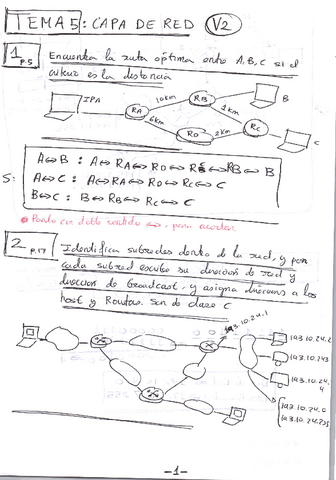 TEMA 5: CAPA DE RED V2
1 p.5 Encuentra la ruta óptima entre A, B, C si el
es la distancia
IPA
RA
10km
RB
B
6km
RD
2km
RC
C
S:
A↔B : A↔RA↔RD↔RC↔RB↔B
A↔C : A↔RA↔RD↔RC↔C
B↔C : B↔RB↔RC↔C
Pondo en doble sentido ↔, para acortar
2 p.17 Identifica subredes dentro de la red, y para
cada subred escribe su dirección de red y
dirección de broadcast, y asigna direcciones a los
host y Routers. Son de clase C
193.10.24.1
193.10.24.2
193.10.24.3
193.10.24.
4
193.10.24.0
193.10.24.255
-1-